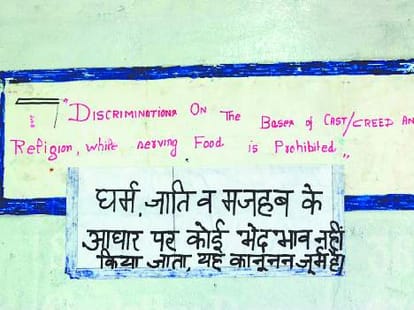 "Discriminations On The Bases of Cast/Creed An
Religion, while serving Food is Prohibited"
धर्म, जाति व मजहब के
आधार पर कोई भेदभाव नहीं
किया जाता, यह कानूनन जुर्म है।